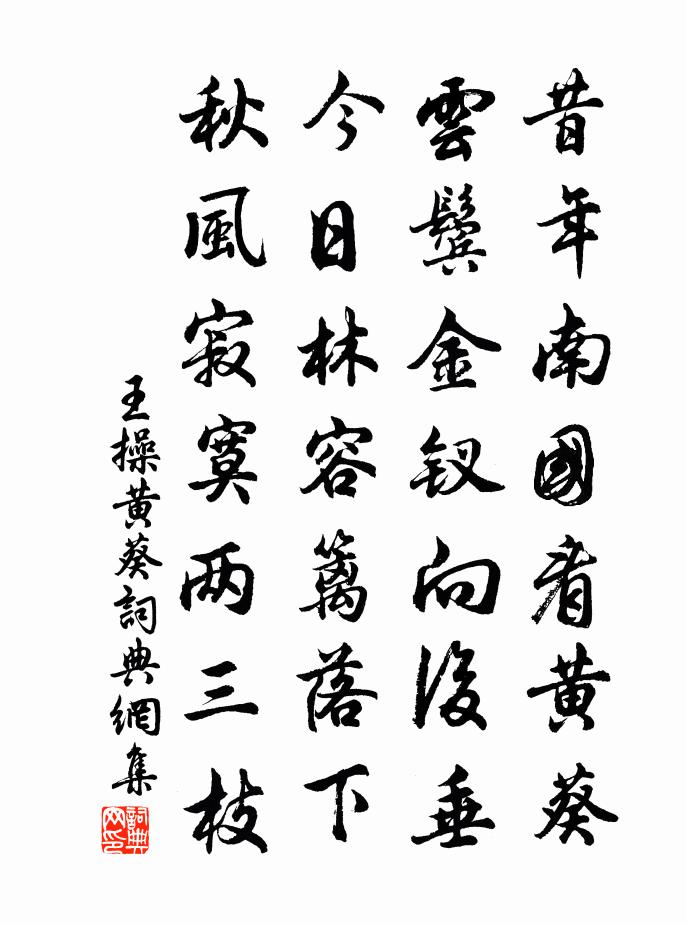 昔年南國看黄葵
雲鬢金釵向後垂
今日林容籬落下
秋風寂寞两三枝
王操黄葵詞典網集
詞典网印